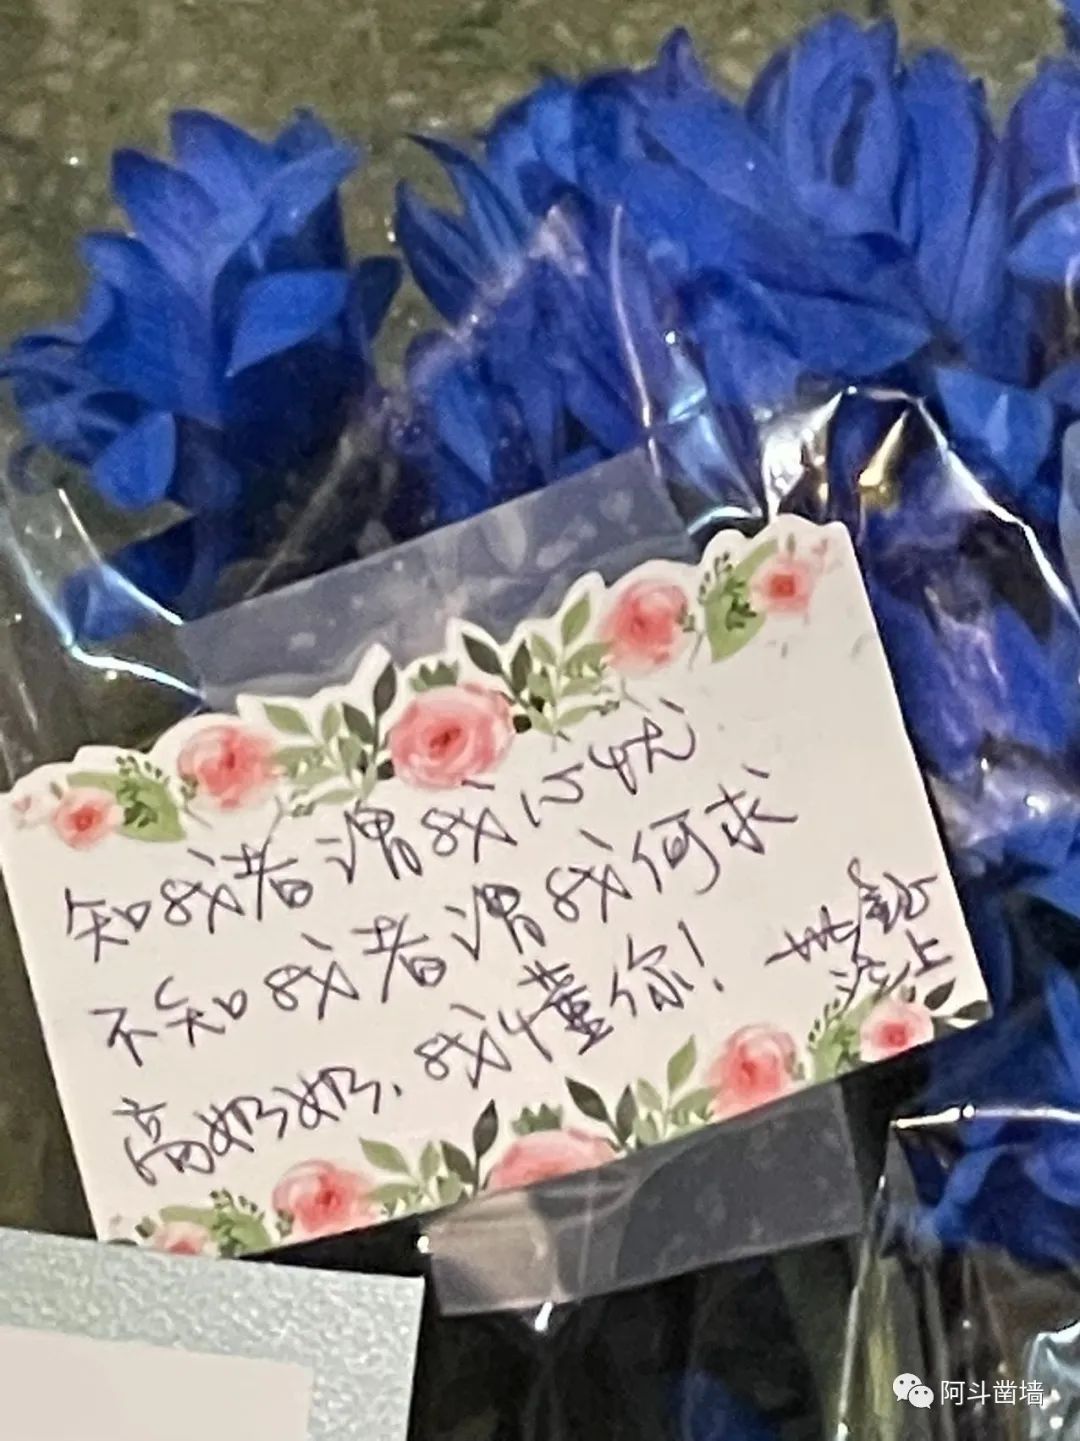 知我者谓我心忧
不知我者谓我何求
高奶奶，我懂你！
上
阿斗凿墙